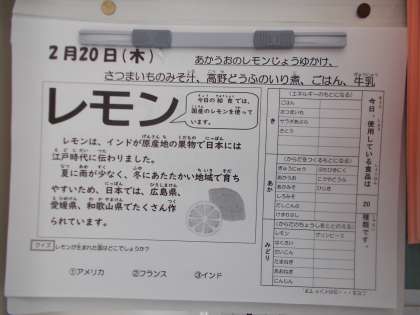 2月20日(木)
あかうおのレモンじょうゆかけ、
さつまいものみそ汁、高野どうふのいり煮、ごはん、牛乳
レモン
今日の和食では、
国産のレモンを使って
います。
レモンは、インドが原産地の果物で日本には
江戸時代に伝わりました。
夏に雨が少なく、冬にあたたかい地域で育ち
やすいため、日本では、広島県、
愛媛県、和歌山県でたくさん作
られています。
クイズ レモンが生まれた国はどこでしょうか？
①アメリカ ②フランス ③インド
今日、使用している食品は 20 種類です。
き
(エネルギーのもとになる)
ごはん
さつまいも
サラダあぶら
さとう
あか
(からだをつくるもとになる)
ぎゅうにゅう
あかうお
あかみそ
しろみそ
ひじき
みどり
レモン グリンピース
はくさい
だいこん
たまねぎ
あおねぎ
にんじん